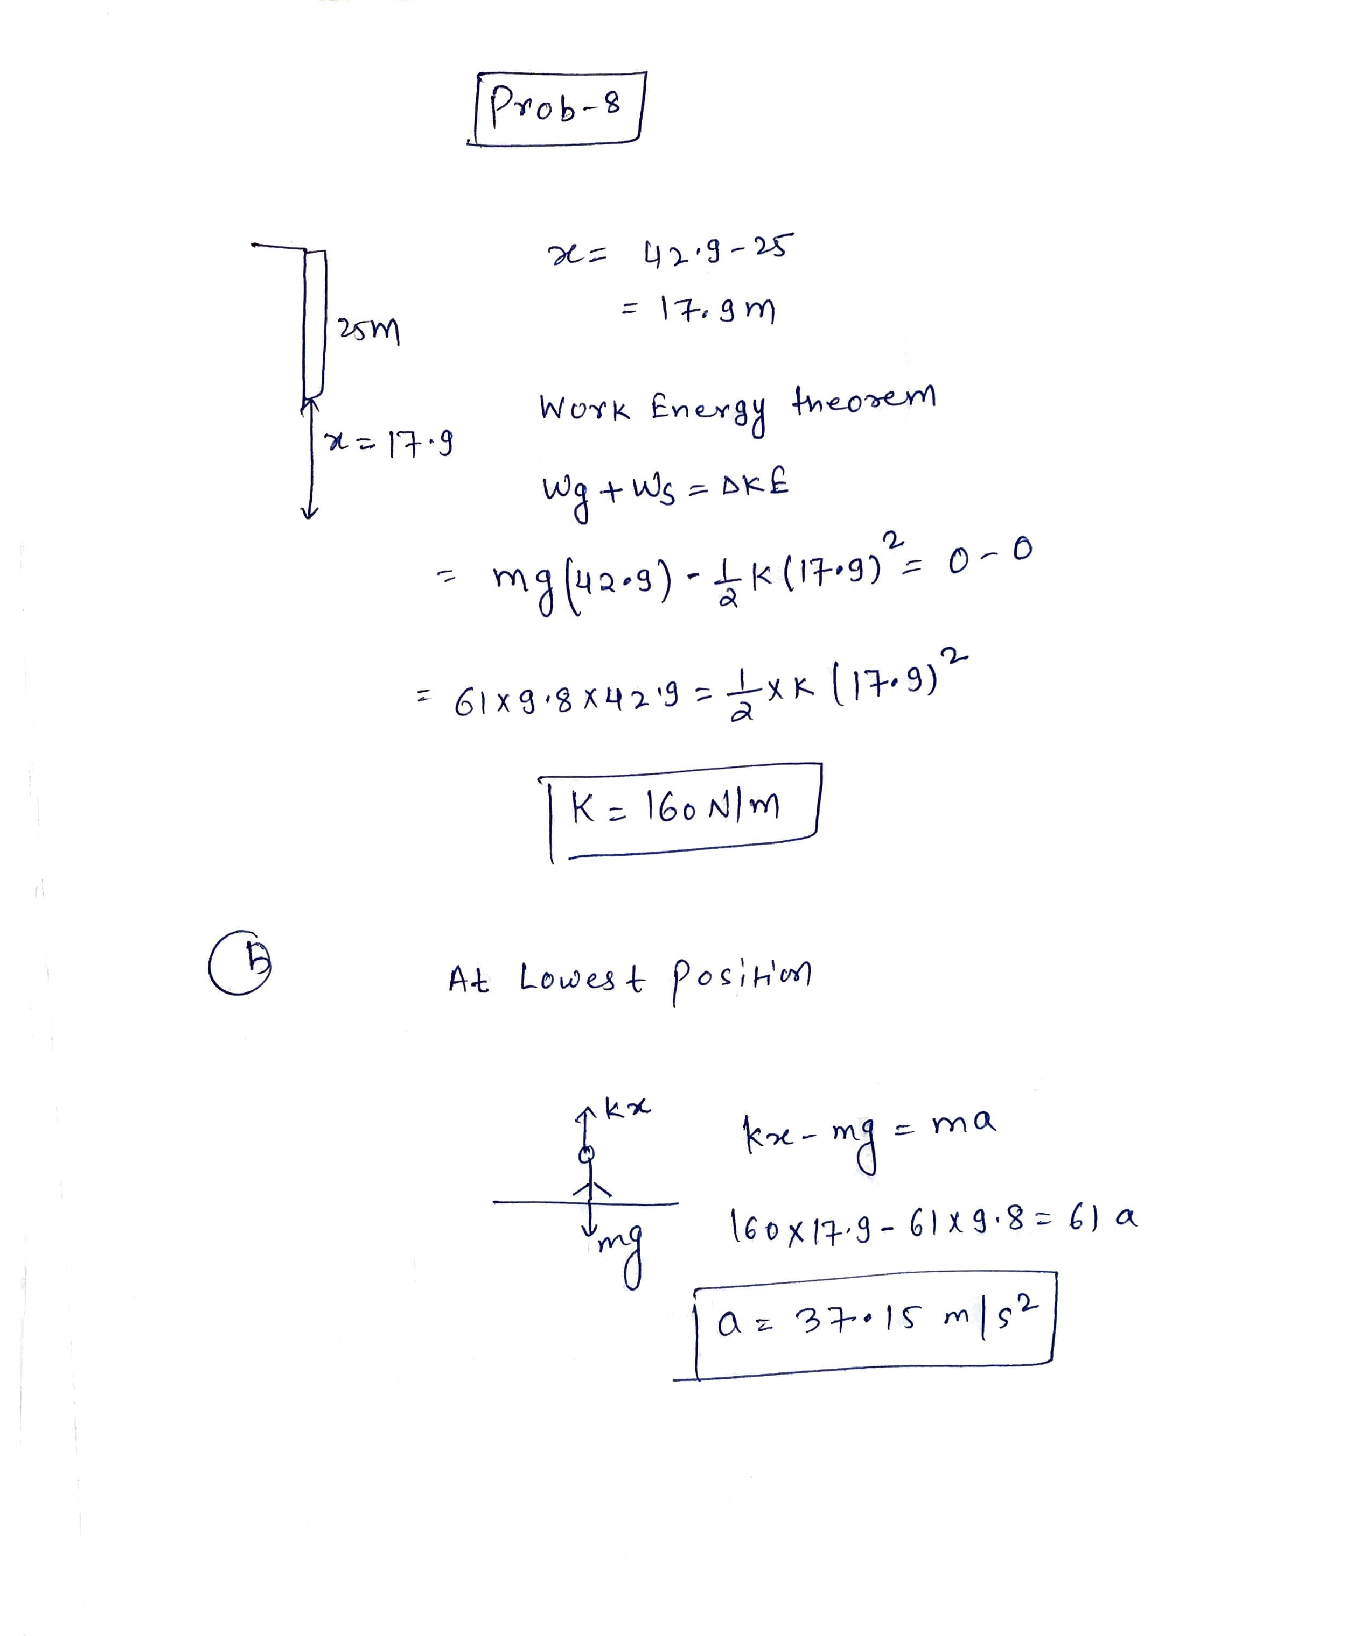 Prob-8
x = 42.9 - 25
= 17.9m
25m
x = 17.9
Work Energy theorem
Wg + Ws = ΔKE
= mg(42.9) - 1/2 K(17.9)² = 0 - 0
= 61 x 9.8 x 42.9 = 1/2 x K (17.9)²
K = 160 N/m
B
At Lowest Position
kx
mg
kx - mg = ma
160 x 17.9 - 61 x 9.8 = 61 a
a = 37.15 m/s²